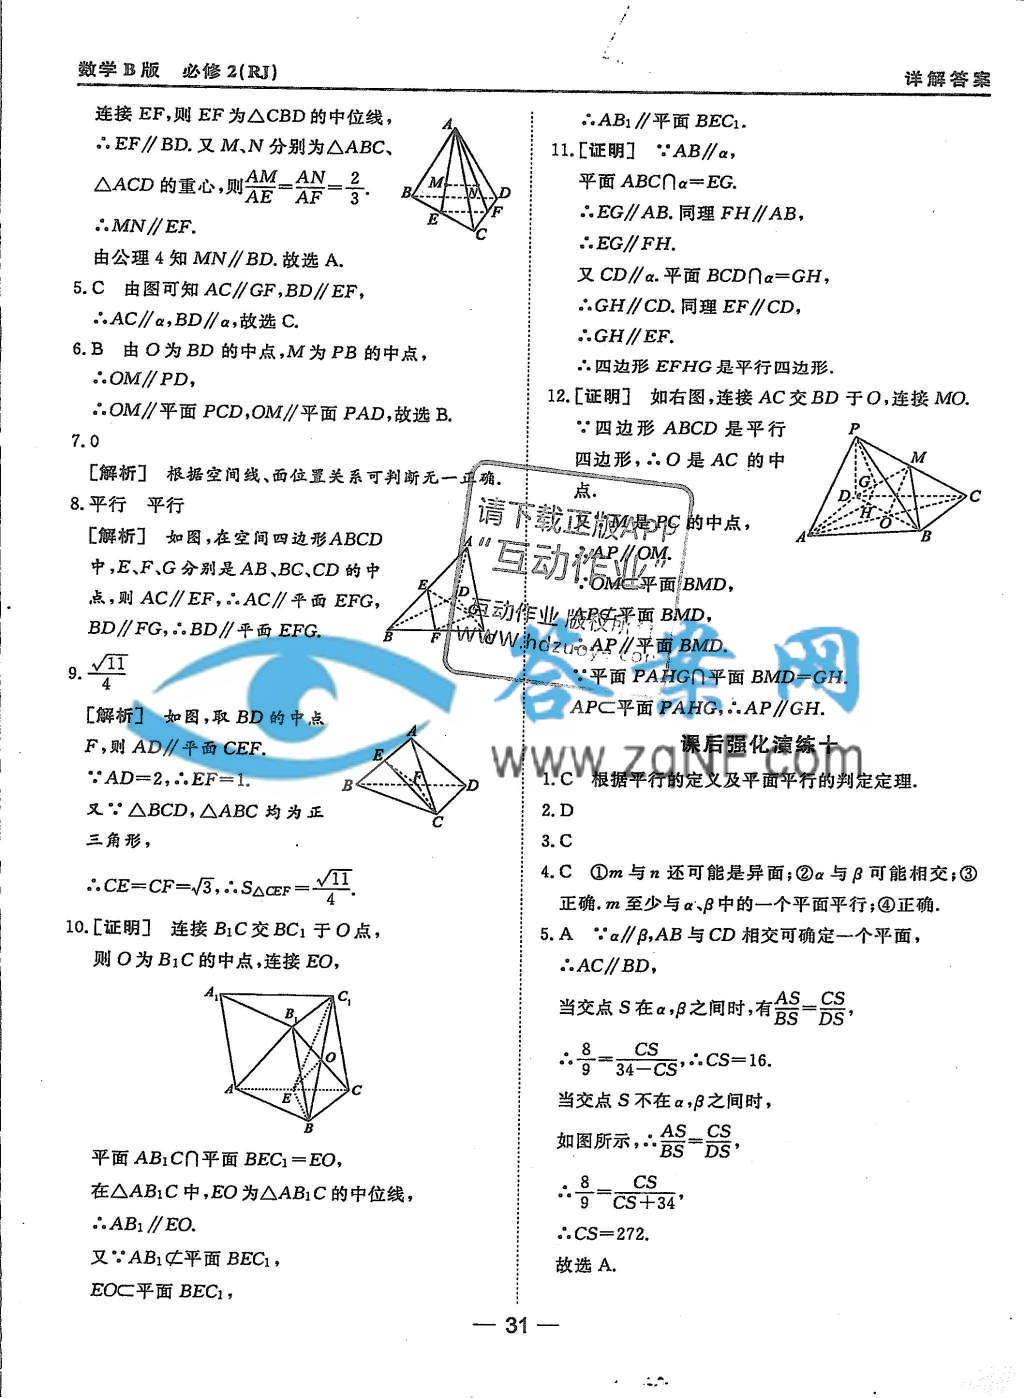 数学B版 必修2(RJ)
详解答案
连接EF,则EF为△CBD的中位线,
∴EF∥BD.又M、N分别为△ABC、
△ACD的重心,则AM/AE=AN/AF=2/3.
∴MN∥EF.
由公理4知MN∥BD.故选A.
A
B
M
N
D
E
F
C
5.C 由图可知AC∥GF,BD∥EF,
∴AC∥α,BD∥α,故选C.
6.B 由O为BD的中点,M为PB的中点,
∴OM∥PD,
∴OM∥平面PCD,OM∥平面PAD,故选B.
7.0
[解析] 根据空间线、面位置关系可判断无一正确.
8.平行 平行
[解析] 如图,在空间四边形ABCD
中,E、F、G分别是AB、BC、CD的中
点,则AC∥EF,∴AC∥平面EFG,
BD∥FG,∴BD∥平面EFG.
A
E
D
B
F
9.√11/4
[解析] 如图,取BD的中点
F,则AD∥平面CEF.
∵AD=2,∴EF=1.
又∵△BCD,△ABC均为正
三角形,
∴CE=CF=√3,∴S△CEF=√11/4.
A
E
B
F
D
C
10.[证明] 连接B₁C交BC₁于O点,
则O为B₁C的中点,连接EO,
A₁
C₁
B₁
O
A
E
C
B
平面AB₁C∩平面BEC₁=EO,
在△AB₁C中,EO为△AB₁C的中位线,
∴AB₁∥EO.
又∵AB₁⊄平面BEC₁,
EO⊂平面BEC₁,
∴AB₁∥平面BEC₁.
11.[证明] ∵AB∥α,
平面ABC∩α=EG.
∴EG∥AB.同理FH∥AB,
∴EG∥FH.
又CD∥α.平面BCD∩α=GH,
∴GH∥CD.同理EF∥CD,
∴GH∥EF.
∴四边形EFHG是平行四边形.
12.[证明] 如右图,连接AC交BD于O,连接MO.
∵四边形ABCD是平行
四边形,∴O是AC的中
点.
又∵M是PC的中点,
∴AP∥OM.
∵OM⊂平面BMD,
AP⊄平面BMD,
∴AP∥平面BMD.
∵平面PAHG∩平面BMD=GH.
AP⊂平面PAHG,∴AP∥GH.
P
M
G
D
C
H
O
A
B
课后强化演练十
1.C 根据平行的定义及平面平行的判定定理.
2.D
3.C
4.C ①m与n还可能是异面;②α与β可能相交;③
正确.m至少与α、β中的一个平面平行;④正确.
5.A ∵α∥β,AB与CD相交可确定一个平面,
∴AC∥BD,
当交点S在α,β之间时,有AS/BS=CS/DS,
∴8/9=CS/34−CS,∴CS=16.
当交点S不在α,β之间时,
如图所示,∴AS/BS=CS/DS,
∴8/9=CS/CS+34,
∴CS=272.
故选A.
请下载正版APP
“互动作业”
互动作业 版权所有
www.hdzuoye.com
答案网
www.zqnf.com
— 31 —